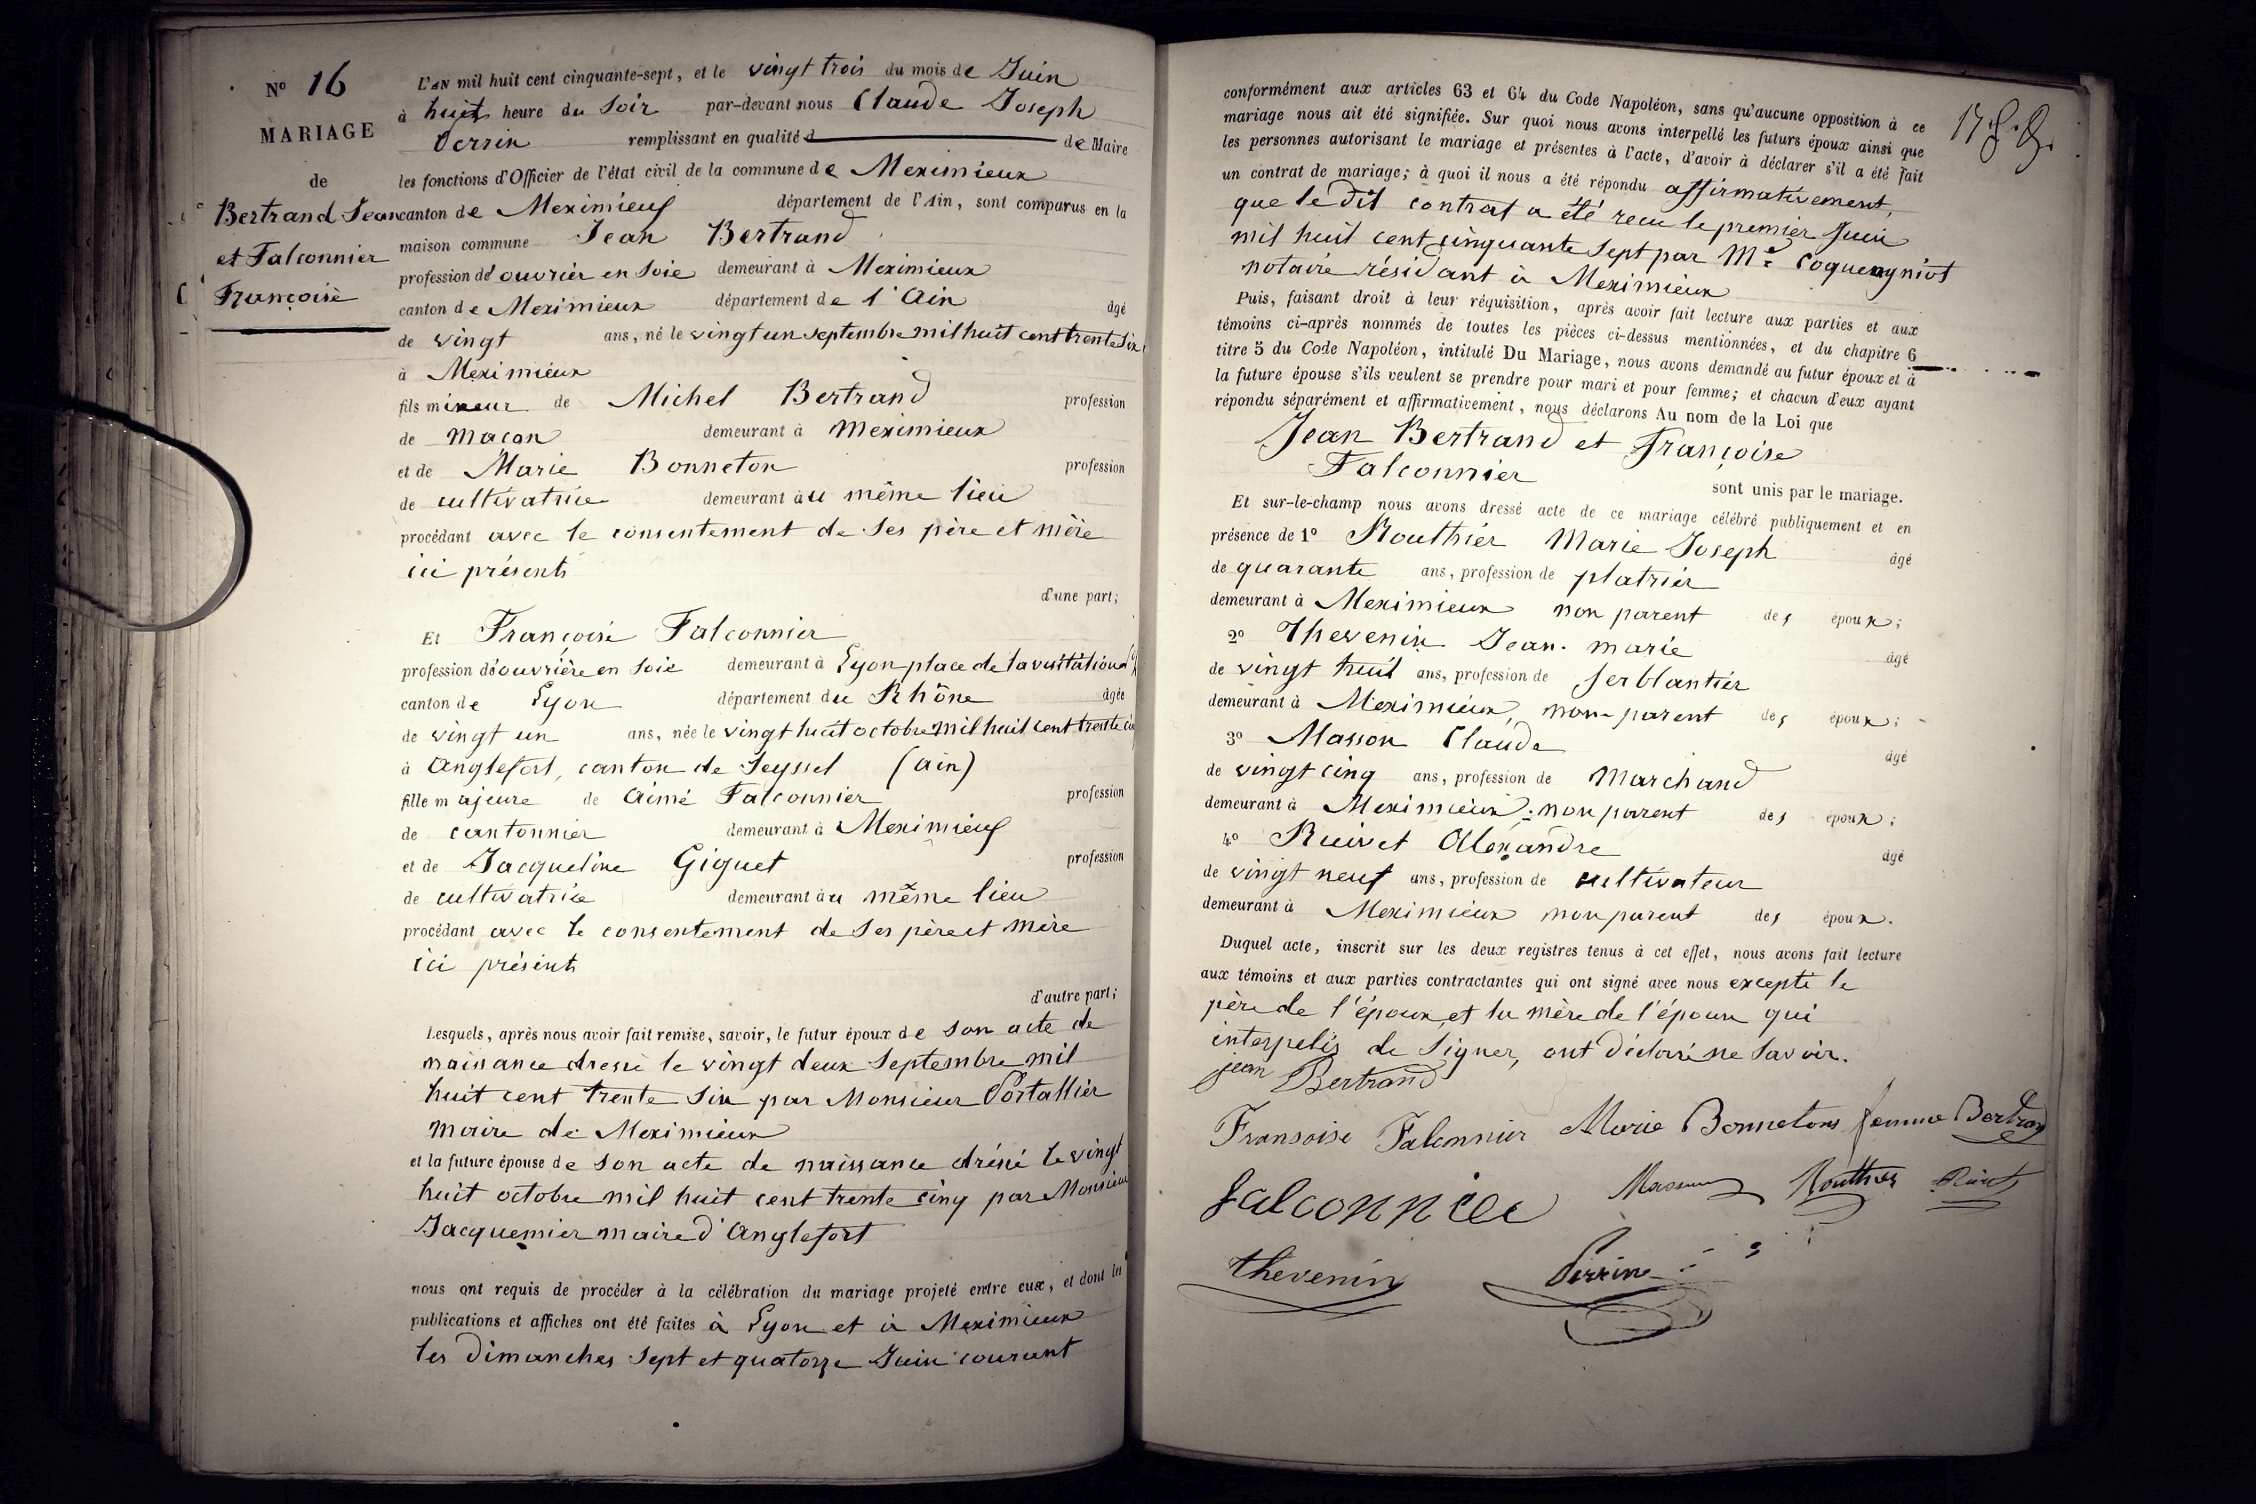 N° 16
MARIAGE
de
Bertrand Jean
et Falconnier
Françoise
L'AN mil huit cent cinquante-sept, et le vingt trois du mois de Juin
à huit heure du Soir par-devant nous Claude Joseph
Perrin remplissant en qualité d de Maire
les fonctions d'Officier de l'état civil de la commune de Meximieux
canton de Meximieux département de l'Ain, sont comparus en la
maison commune Jean Bertrand
profession d'ouvrier en Soie demeurant à Meximieux
canton de Meximieux département de l'Ain âgé
de vingt ans, né le vingt un septembre mil huit cent trente Six
à Meximieux
fils mineur de Michel Bertrand profession
de maçon demeurant à Meximieux
et de Marie Bonneton profession
de cultivatrice demeurant au même lieu
procédant avec le consentement de Ses père et mère
ici présents
d'une part;
Et Françoise Falconnier
profession d'ouvrière en Soie demeurant à Lyon place de la visitation
canton de Lyon département du Rhône âgée
de vingt un ans, née le vingt huit octobre mil huit cent trente
à Anglefort, canton de Seyssel (Ain)
fille majeure de Aimé Falconnier profession
de cantonnier demeurant à Meximieux
et de Jacqueline Giguet profession
de cultivatrice demeurant au même lieu
procédant avec le consentement de Ses père et mère
ici présents
d'autre part;
Lesquels, après nous avoir fait remise, savoir, le futur époux de son acte de
naissance dressé le vingt deux Septembre mil
huit cent trente Six par Monsieur Portallier
maire de Meximieux
et la future épouse de son acte de naissance dréssé le vingt
huit octobre mil huit cent trente cinq par Monsieur
Jacquemier maire d'Anglefort
nous ont requis de procéder à la célébration du mariage projeté entre eux, et dont les
publications et affiches ont été faites à Lyon et à Meximieux
les dimanches Sept et quatorze Juin courant
conformément aux articles 63 et 64 du Code Napoléon, sans qu'aucune opposition à ce
mariage nous ait été signifiée. Sur quoi nous avons interpellé les futurs époux ainsi que
les personnes autorisant le mariage et présentes à l'acte, d'avoir à déclarer s'il a été fait
un contrat de mariage; à quoi il nous a été répondu affirmativement,
que le dit contrat a été recu le premier Juin
mil huit cent cinquante Sept par Me Coquengniot
notaire résidant à Meximieux
Puis, faisant droit à leur réquisition, après avoir fait lecture aux parties et aux
témoins ci-après nommés de toutes les pièces ci-dessus mentionnées, et du chapitre 6
titre 5 du Code Napoléon, intitulé Du Mariage, nous avons demandé au futur époux et à
la future épouse s'ils veulent se prendre pour mari et pour femme; et chacun d'eux ayant
répondu séparément et affirmativement, nous déclarons Au nom de la Loi que
Jean Bertrand et Françoise
Falconnier
sont unis par le mariage.
Et sur-le-champ nous avons dressé acte de ce mariage célébré publiquement et en
présence de 1° Routhier Marie Joseph âgé
de quarante ans, profession de platrier
demeurant à Meximieux non parent des époux;
2° Thevenin Jean-marie âgé
de vingt huit ans, profession de ferblantier
demeurant à Meximieux, non parent des époux;
3° Masson Claude âgé
de vingt cinq ans, profession de Marchand
demeurant à Meximieux, non parent des époux;
4° Ruivet Alexandre âgé
de vingt neuf ans, profession de cultivateur
demeurant à Meximieux non parent des époux.
Duquel acte, inscrit sur les deux registres tenus à cet effet, nous avons fait lecture
aux témoins et aux parties contractantes qui ont signé avec nous excepté le
père de l'époux et la mère de l'épouse qui
interpelés de Signer, ont déclaré ne Savoir.
jean Bertrand
Fransoise Falconnier Marie Bonneton femme Bertrand
falconnier Masson Routhier Ruivet
thevenin Perrin